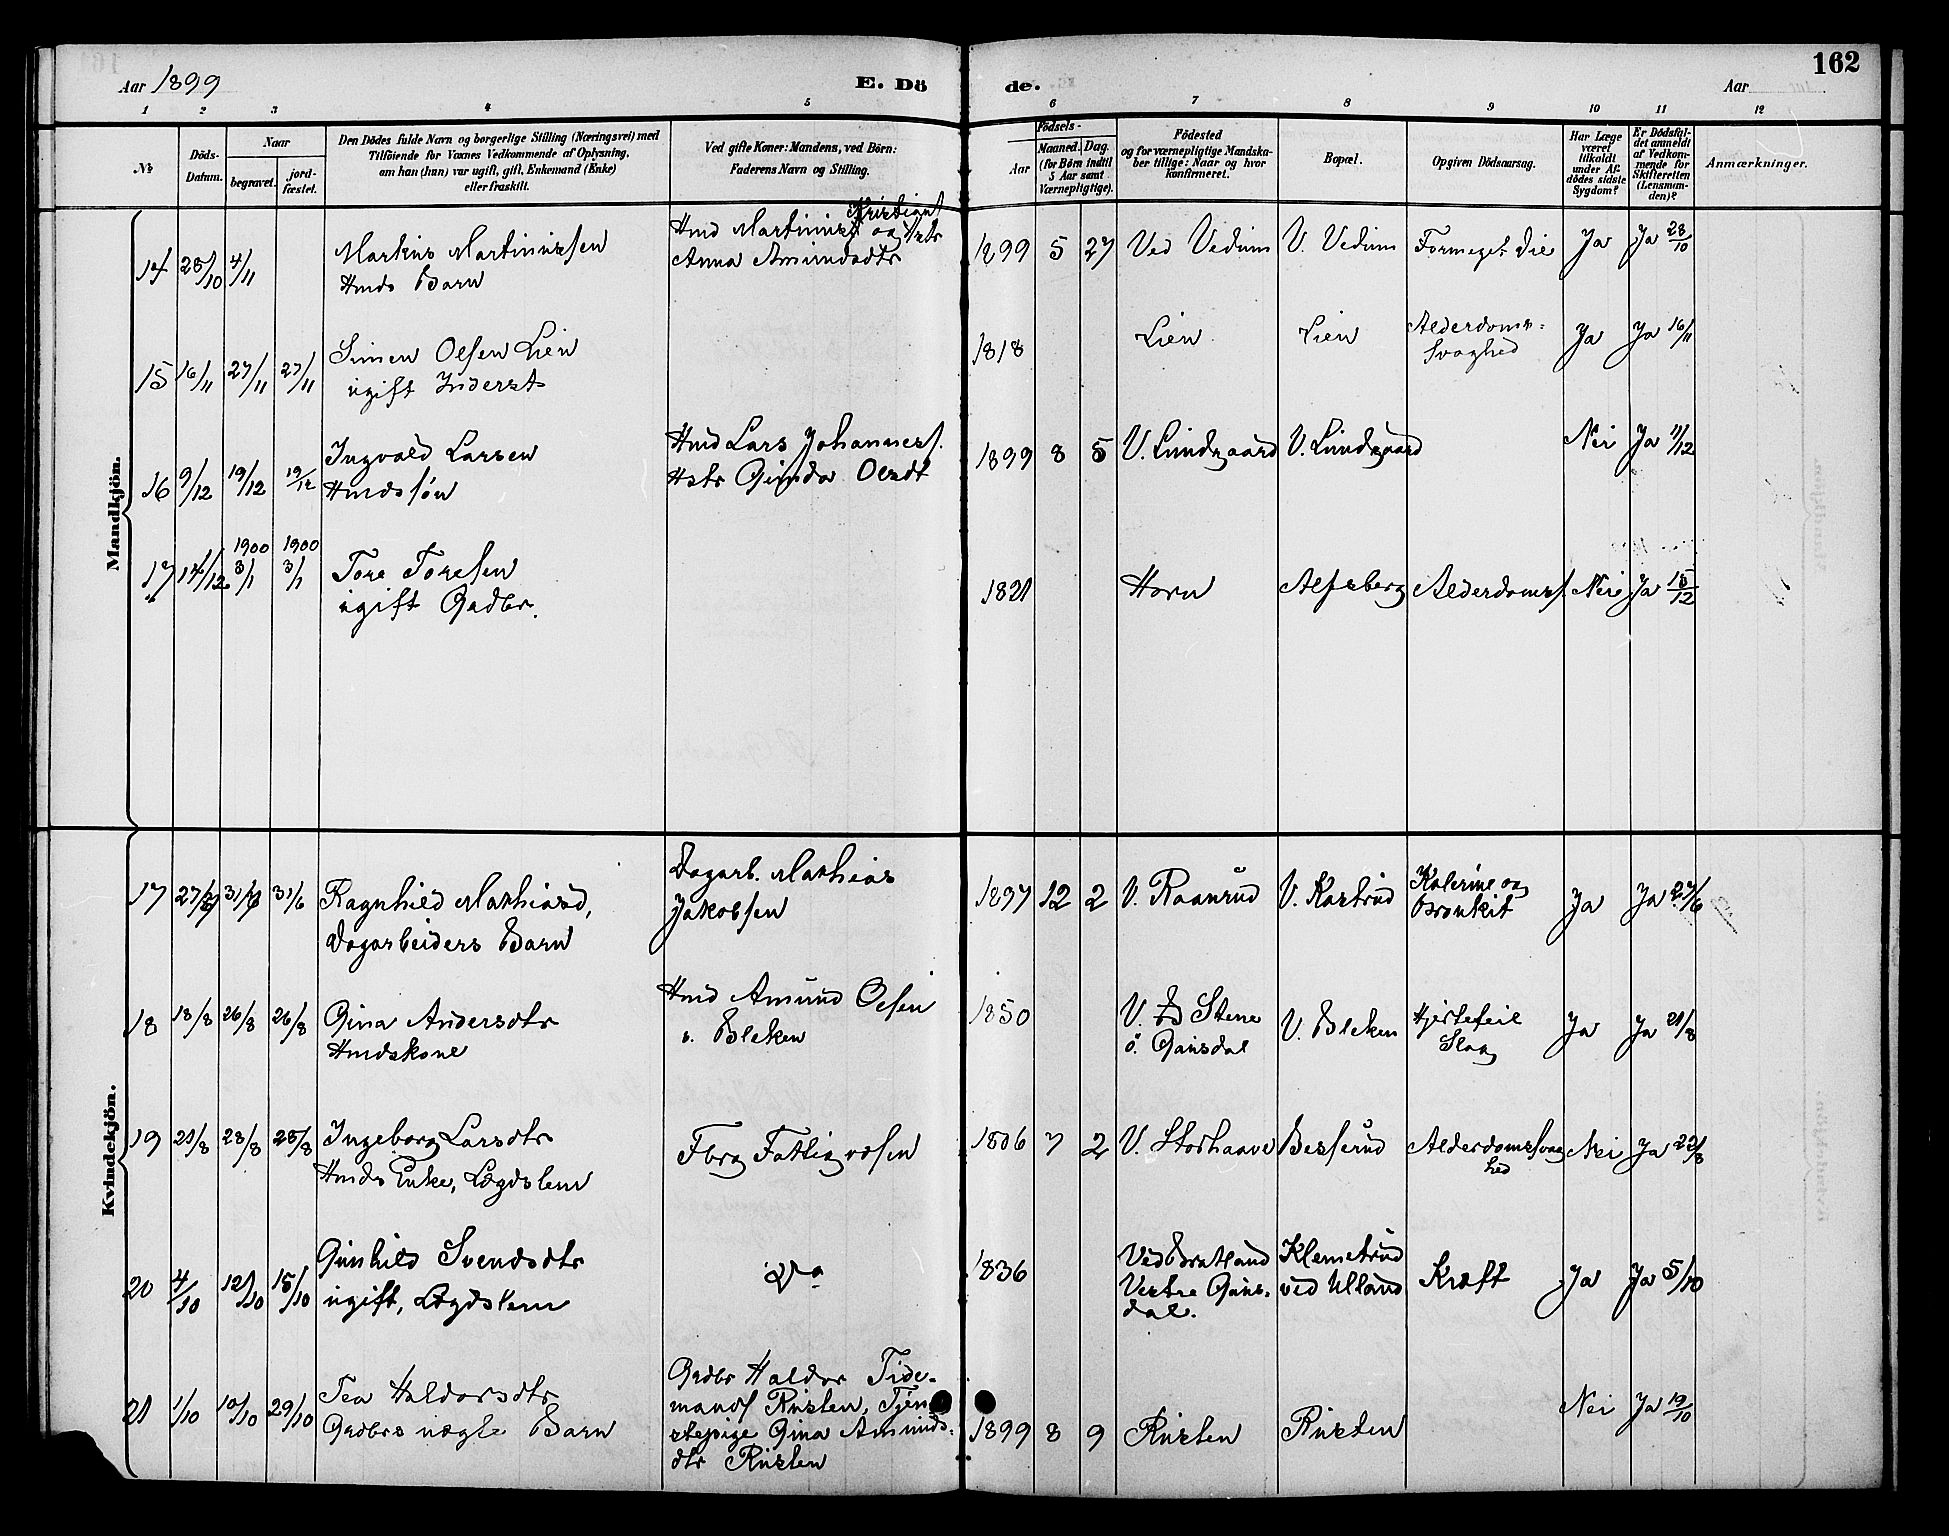 162
Aar 1899
E. Dö
de.
Aar
1 2 3 4 5 6 7 8 9 10 11 12
№
Döds-
Datum.
Naar
begravet.
jord-
fæstet.
Den Dödes fulde Navn og borgerlige Stilling (Næringsvei) med
Tilföiende for Voxnes Vedkommende af Oplysning,
om han (hun) var ugift, gift, Enkemand (Enke)
eller fraskilt.
Ved gifte Koner: Mandens, ved Börn:
Faderens Navn og Stilling.
Födsels-
Aar
Maaned. Dag.
(for Börn indtil
5 Aar samt
Værnepligtige).
Födested
og for værnepligtige Mandska-
ber tillige: Naar og hvor
konfirmeret.
Bopæl.
Opgiven Dödsaarsag.
Har Læge
været
tilkaldt
under Af-
dödes sidste
Sygdom?
Er Dödsfal-
det anmeldt
af Vedkom-
mende for
Skifteretten
(Lensman-
den)?
Anmærkninger.
Mandkjön.
14 28/10 4/11
Martin Martiniussen
Hmds Barn
Kristians
Hmd Martinius og Hstr
Anna Amundsdtr
1899 5 27 Ved Vedum V. Vedum Formeget Die Ja Ja 28/10
15 16/11 27/11 27/11
Simen Olsen Lien
ugift Inderst
1818 Lien Lien
Alderdoms-
svaghed
Ja Ja 16/11
16 9/12 19/12 19/12
Ingvald Larsen
Hmdssøn
Hmd Lars Johanness.
Hstr Gunda Olsdt
1899 8 5 V. Lundgaard V. Lundgaard Nei Ja 11/12
17 14/12 1900 3/1 1900 3/1
Tore Toresen
ugift Gadbr.
1821 Horn Alfsberg Alderdomss. Nei Ja 15/12
Kvindekjön.
17 27/6 31/6 31/6
Ragnhild Mathiasd,
Dagarbeiders Barn
Dagarb. Mathias
Jakobsen
1897 12 2 V. Raanrud V. Kastrud
Kolerine og
Bronkit
Ja Ja 27/6
18 18/8 26/8 26/8
Gina Andersdtr
Hmdskone
Hmd Amund Olsen
v. Bleken
1850
V. Stene
ö. Gausdal
V. Bleken
Hjertefeil
Slag
Ja Ja 21/8
19 21/8 28/8 28/8
Ingeborg Larsdtr
Hmds Enke, Lægdslem
Fbrg Fattigvæsen
1806 7 2 V. Storhaave Besserud
Alderdomssvag
hed
Nei Ja 22/8
20 4/10 12/10 15/10
Gunhild Svendsdtr
ugift, Lægdslem
Do
1836
Ved Bratland
Vestre Gaus-
dal.
Klemetrud
ved Ulland
Kræft Ja Ja 5/10
21 1/10 10/10 29/10
Tea Haldorsdtr
Gadbrs uægte Barn
Gadbr Haldor Tide-
mands Rusten, Tjen
stepige Gina Amunds-
dtr Rusten
1899 8 9 Rusten Rusten Nei Ja 19/10